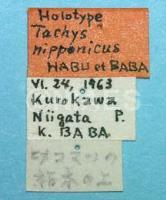 Holotype
Tachys
nipponicus
HABU et BABA
VI. 24, 1963
Kurokawa
Niigata P.
K. BABA